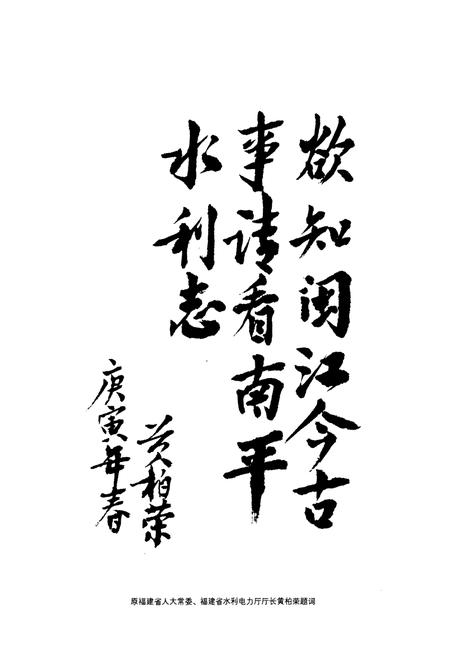 欲知闽江今古
事请看南平
水利志
黄柏荣
庚寅年春
原福建省人大常委、福建省水利电力厅厅长黄柏荣题词